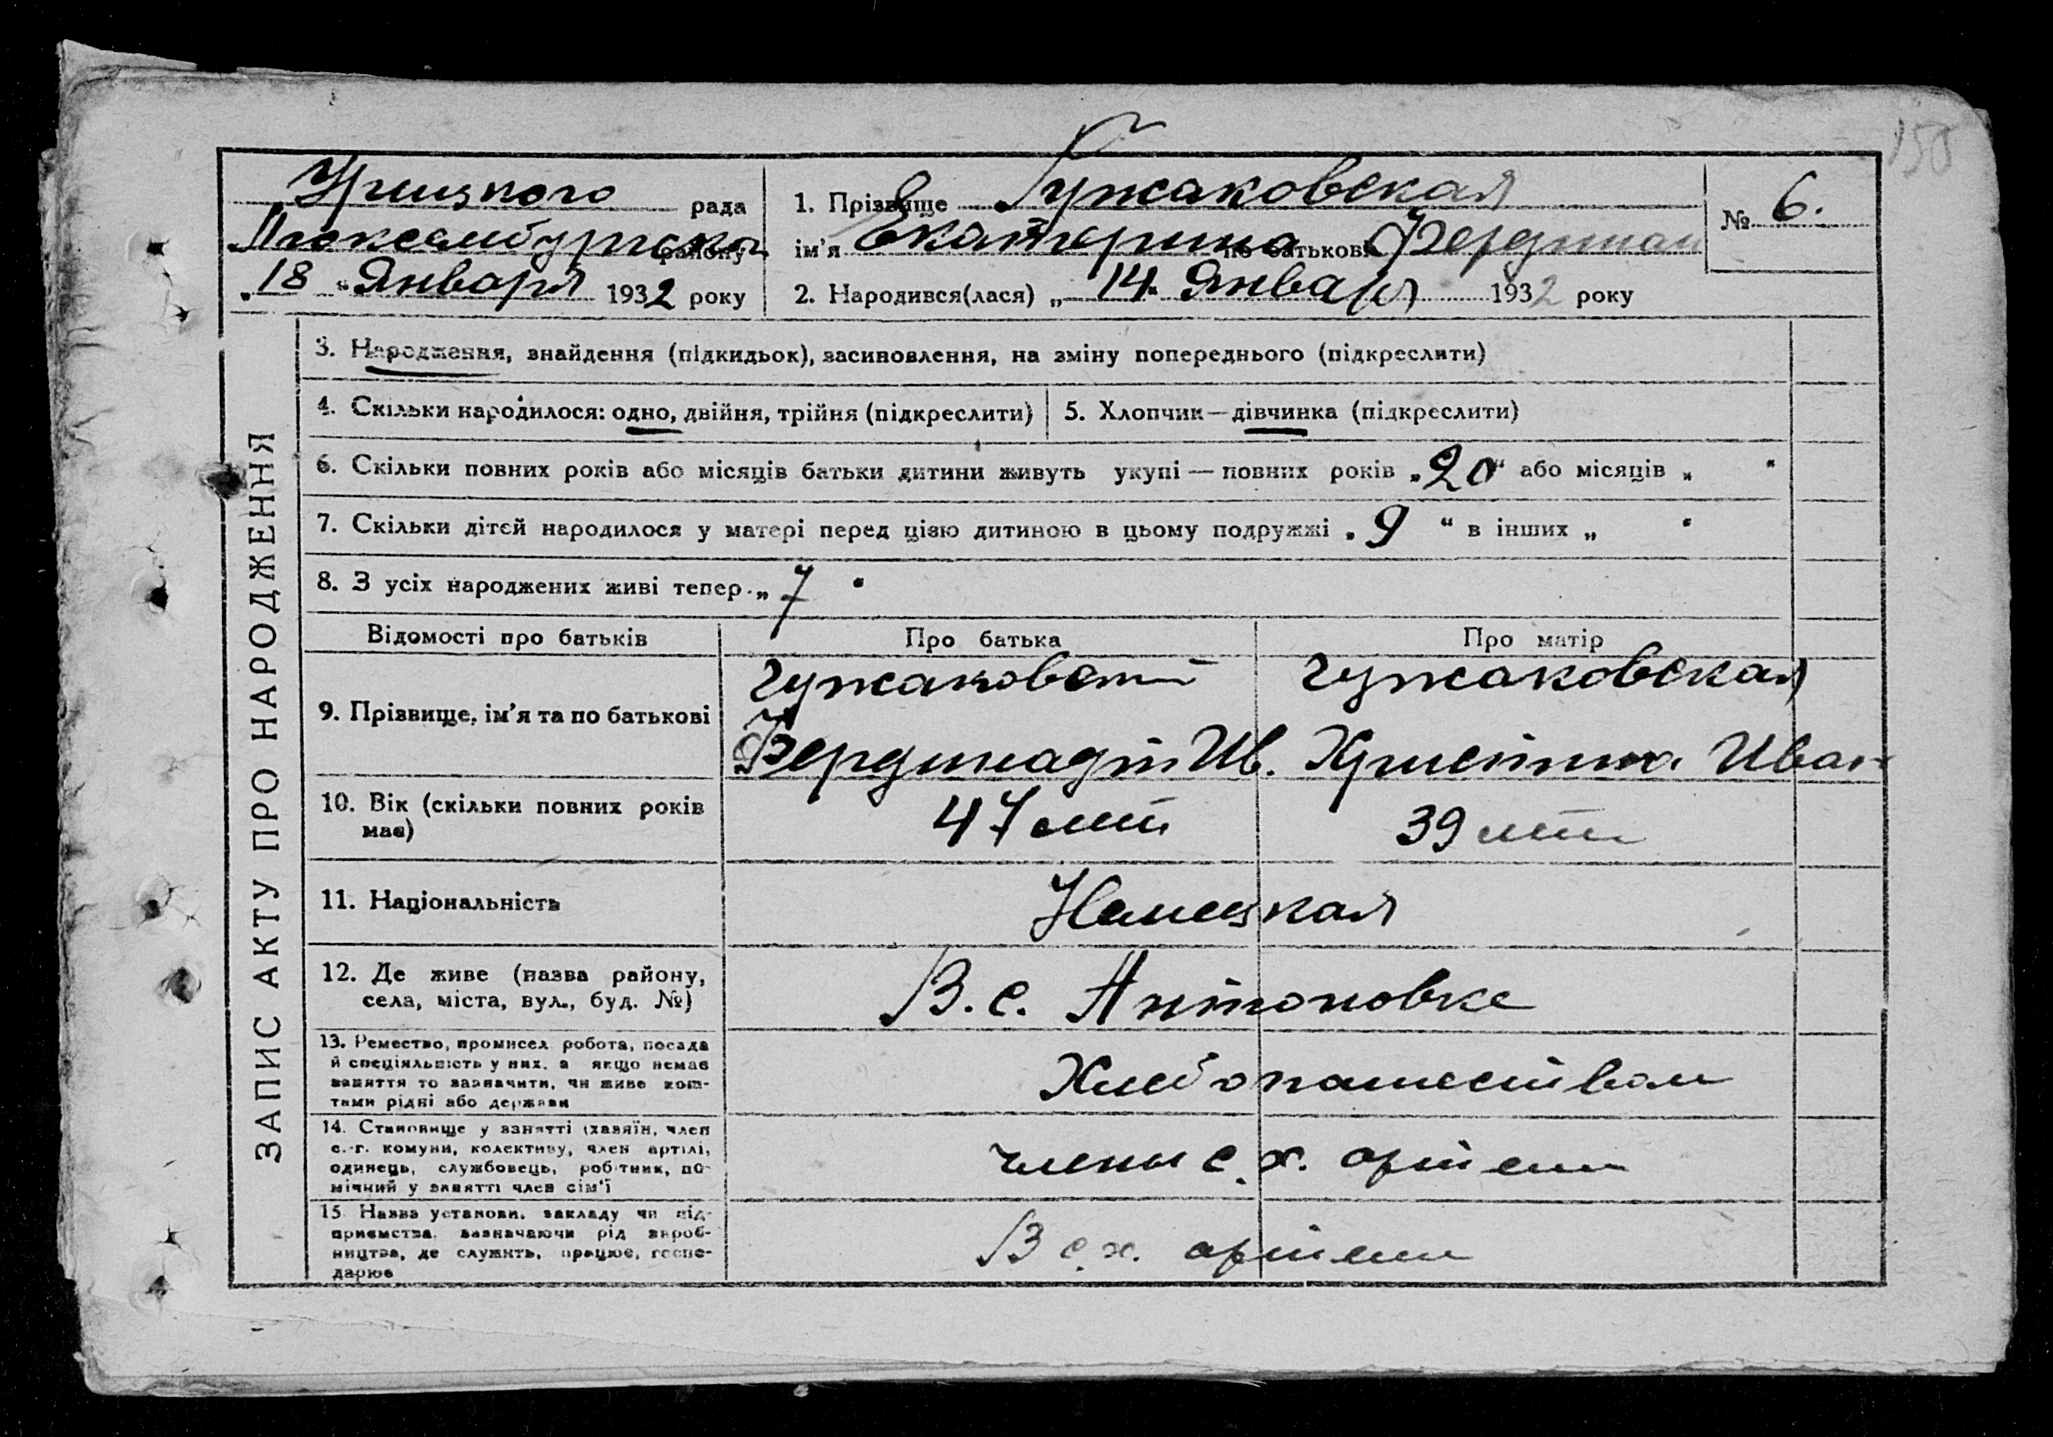 150
Урицкого рада
Люксембургског району
„18“ Января 1932 року
1. Прізвище Гужаковская
ім'я Екатерина по батькові Фердинан
2. Народився(лася) „14“ Января 1932 року
№ 6.
ЗАПИС АКТУ ПРО НАРОДЖЕННЯ
3. Народження, знайдення (підкидьок), засиновлення, на зміну попереднього (підкреслити)
4. Скільки народилося: одно, двійня, трійня (підкреслити)
5. Хлопчик—дівчинка (підкреслити)
6. Скільки повних років або місяців батьки дитини живуть укупі — повних років „20“ або місяців „ “
7. Скільки дітей народилося у матері перед цією дитиною в цьому подружжі „9“ в інших „ “
8. З усіх народжених живі тепер „7“
Відомості про батьків Про батька Про матір
9. Прізвище, ім'я та по батькові
Гужаковский
Фердинадт Ив.
Гужаковская
Христина Иван
10. Вік (скільки повних років
має)
47 лет
39 лет
11. Національність
Немецкая
12. Де живе (назва району,
села, міста, вул., буд. №)
В. с. Антоновке
13. Ремество, промисел робота, посада
й спеціяльність у них, а якщо немає
заняття то зазначити, чи живе кош-
тами рідні або держави
Хлебопашеством
14. Становище у занятті (хазяїн, член
с.-г. комуни, колективу, член артілі,
одинець, службовець, робітник, по-
мічний у занятті член сім'ї
члены с. х. артели
15. Назва установи, закладу чи під-
приємства, зазначаючи рід вироб-
ництва, де служить, працює, госпо-
дарює
В с. х. артели